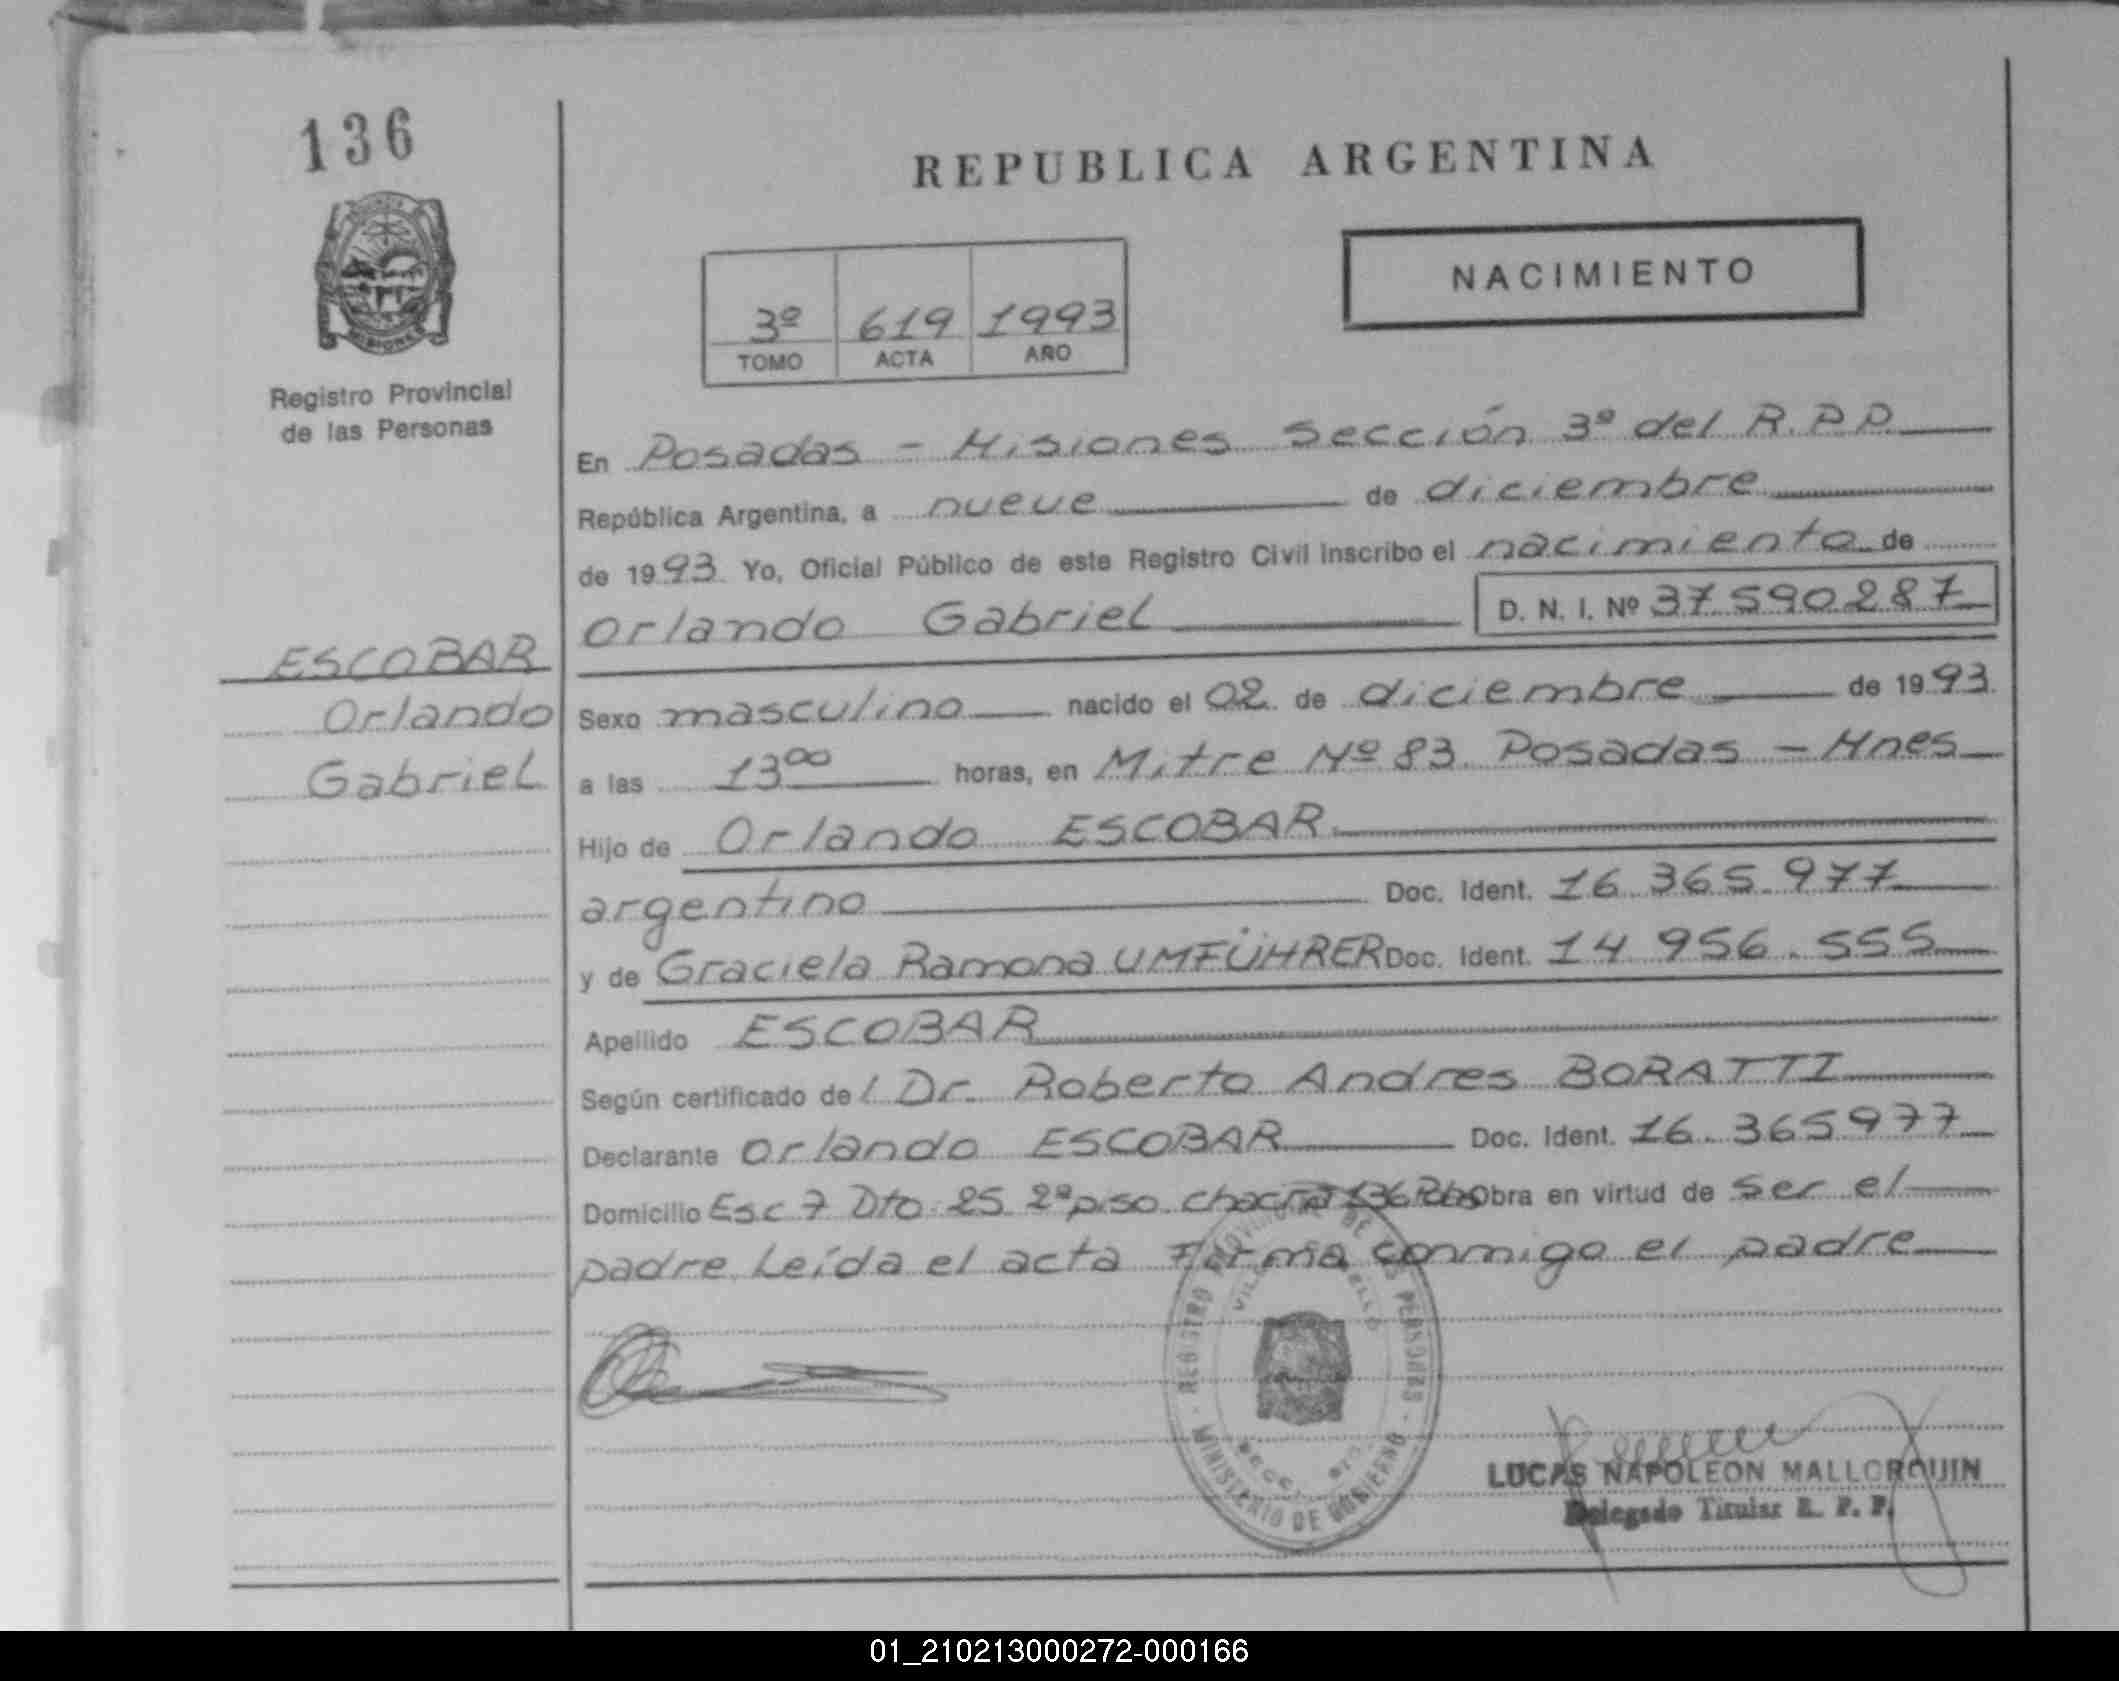 136
MISIONES
Registro Provincial
de las Personas
ESCOBAR
Orlando
Gabriel
REPUBLICA ARGENTINA
NACIMIENTO
3º 619 1993
TOMO ACTA AÑO
En Posadas - Misiones Sección 3º del R.P.P.
República Argentina, a nueve de diciembre
de 1993 Yo, Oficial Público de este Registro Civil inscribo el nacimiento de
Orlando Gabriel D. N. I. Nº 37590287
Sexo masculino nacido el 02 de diciembre de 1993
a las 13 00 horas, en Mitre Nº 83 Posadas - Mnes
Hijo de Orlando ESCOBAR
argentino Doc. Ident. 16.365.977
y de Graciela Ramona UMFÜHRER Doc. Ident. 14 956.555
Apellido ESCOBAR
Según certificado del Dr. Roberto Andres BORATTI
Declarante Orlando ESCOBAR Doc. Ident. 16.365977
Domicilio Esc 7 Dto 25 2º piso chacra 136 Obra en virtud de ser el
padre Leída el acta Firma conmigo el padre
REGISTRO PROVINCIAL DE LAS PERSONAS
MINISTERIO DE GOBIERNO
LUCAS NAPOLEON MALLORQUIN
Delegado Titular R. P. P.
01_210213000272-000166